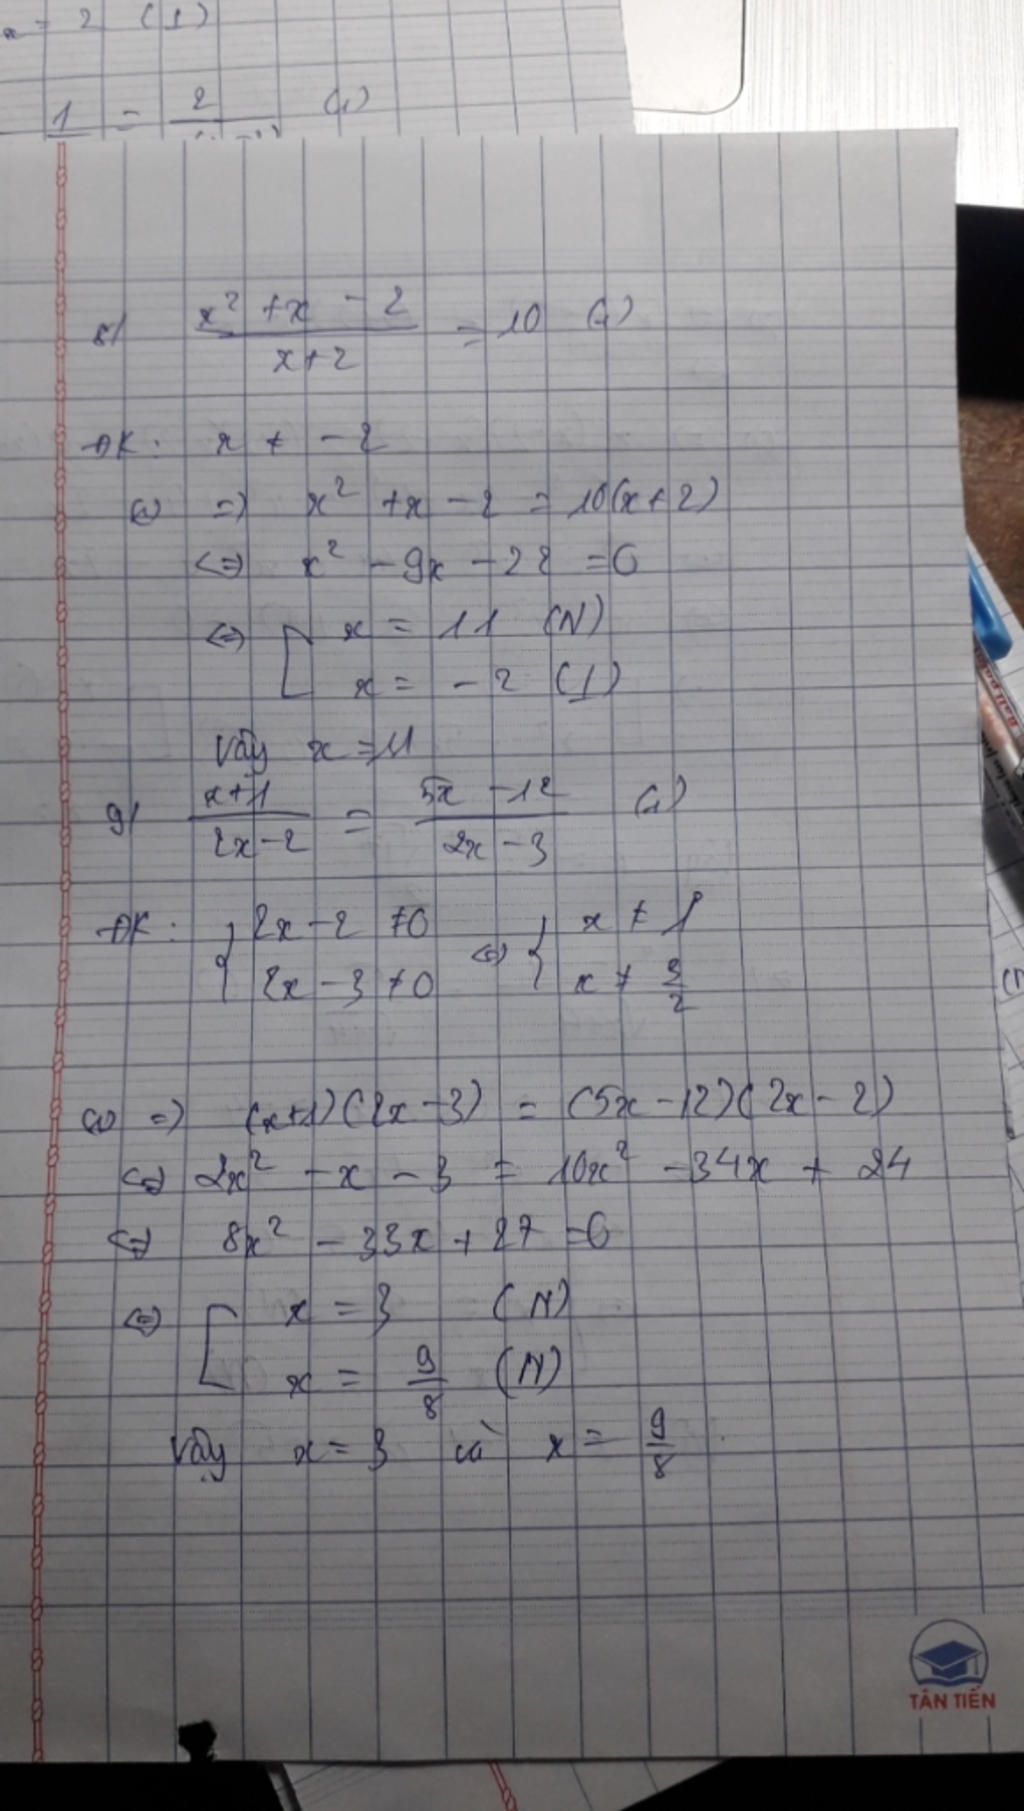 x = 2 (L)
1 = 2 (1)
8/ x² + x - 2 / x + 2 = 10 (1)
ĐK: x ≠ -2
(1) => x² + x - 2 = 10(x + 2)
<=> x² - 9x - 22 = 0
<=> [ x = 11 (N)
x = -2 (L)
Vậy x = 11
9/ x+1 / 2x-2 = 5x - 12 / 2x - 3 (1)
ĐK: { 2x - 2 ≠ 0 <=> { x ≠ 1
2x - 3 ≠ 0 x ≠ 3/2
(1) => (x+1)(2x-3) = (5x-12)(2x-2)
<=> 2x² - x - 3 = 10x² - 34x + 24
<=> 8x² - 33x + 27 = 0
<=> [ x = 3 (N)
x = 9/8 (N)
Vậy x = 3 và x = 9/8
TÂN TIẾN